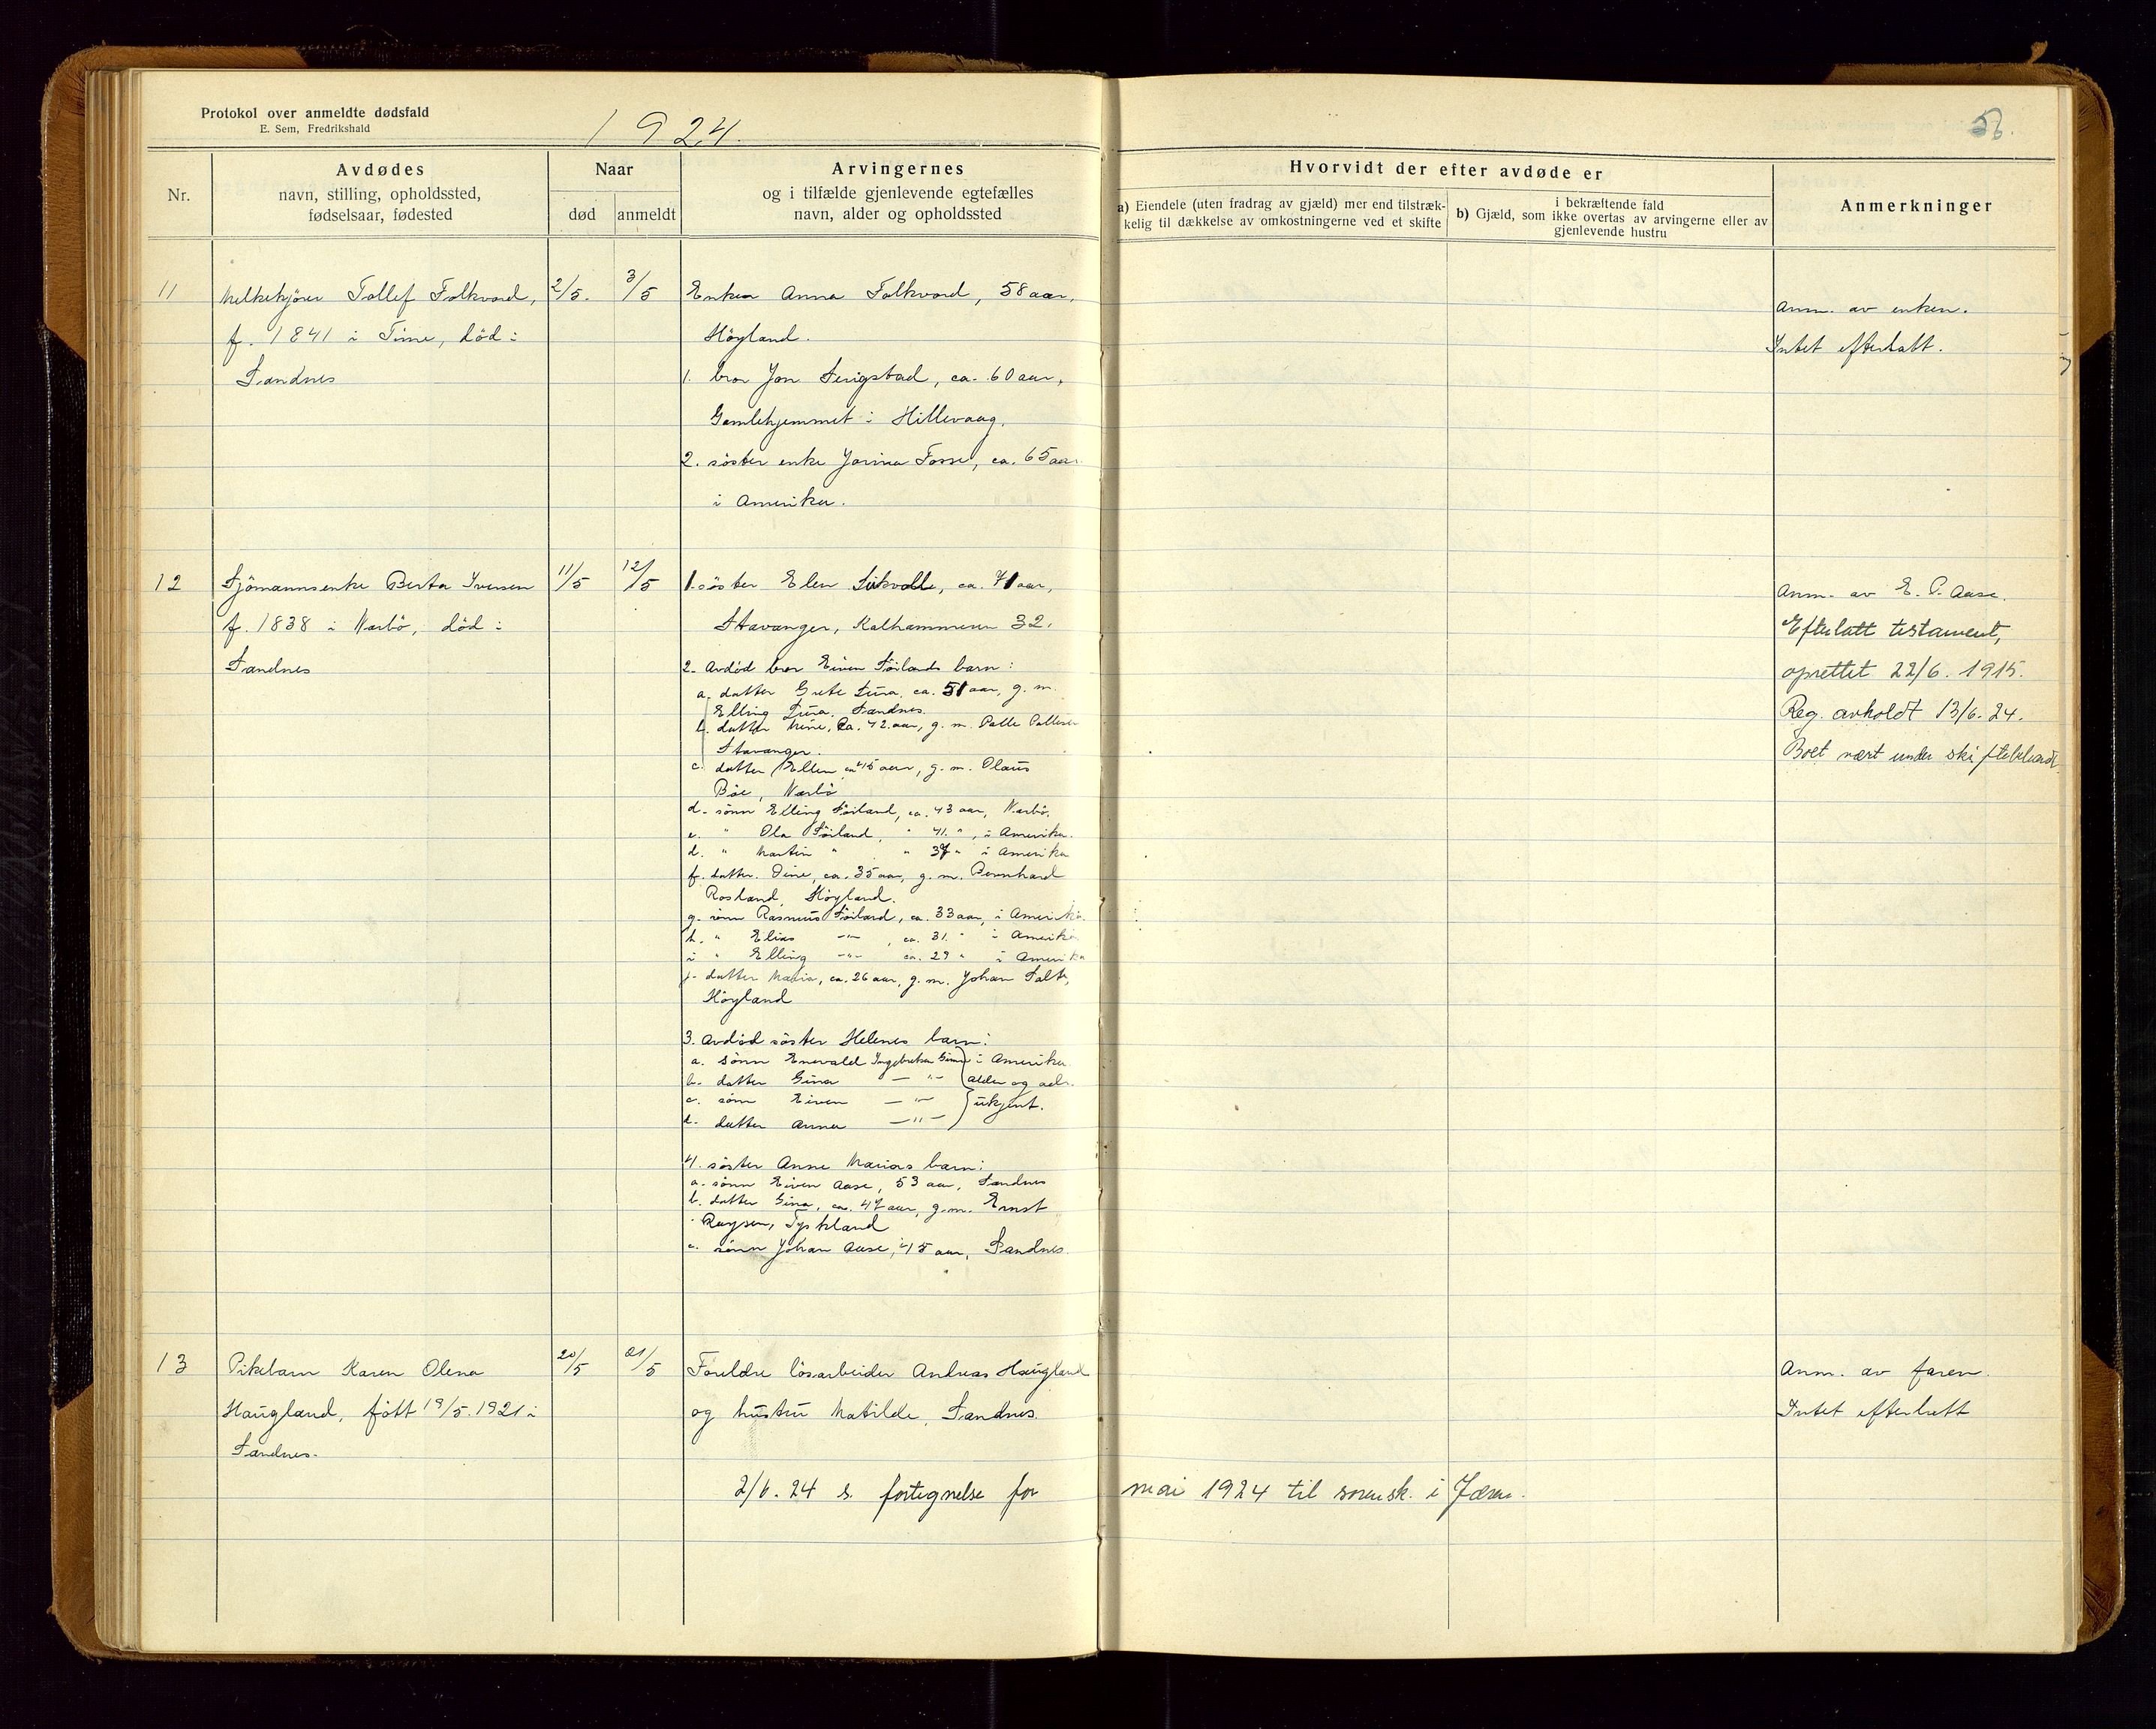 Protokol over anmeldte dødsfald
E. Sem, Fredrikshald
1924.
56.
Nr.
Avdødes
navn, stilling, opholdssted,
fødselsaar, fødested
Naar
død
anmeldt
Arvingernes
og i tilfælde gjenlevende egtefælles
navn, alder og opholdssted
Hvorvidt der efter avdøde er
a) Eiendele (uten fradrag av gjæld) mer end tilstræk-
kelig til dækkelse av omkostningerne ved et skifte
b) Gjæld, som i bekræftende fald ikke overtas av arvingerne eller av
gjenlevende hustru
Anmerkninger
11
Melkekjører Tollef Folkvord,
f. 1841 i Time, död i
Sandnes
2/5.
3/5
Enken Anna Folkvord, 58 aar,
Höyland.
1. bror Jon Serigstad, ca. 60 aar,
Gamlehjemmet i Hillevaag.
2. söster enke Jorina Fosse, ca. 65 aar
i Amerika.
Anm. av enken.
Intet efterlatt.
12
Sjömannsenke Berta Iversen
f. 1838 i Nærbö, död i
Sandnes
11/5
12/5
1. söster Elen, ca. 71 aar,
Stavanger, Kalhammeren 32.
2. Avdöd bror Eiven Söilands barn:
a. datter Grete Lura, ca. 51 aar, g. m.
Elling Lura, Sandnes.
b. datter Mine, ca. 42 aar, g. m. Palle Pallesen
Stavanger.
c. datter Ellen ca 45 aar, g. m. Olaus
Böe, Nærbö
d. sönn Elling Söiland, ca. 43 aar, Nærbö.
e. " Ola Söiland, " 41. ", i Amerika.
d. " Martin " " 37 " i Amerika
f. datter. Dine, ca. 35 aar, g. m. Bernhard
Rosland, Höyland.
g. sönn Rasmus Söiland, ca. 33 aar, i Amerika.
h. " Elias —"— , ca. 31. " i Amerika
i " Elling —"— ca. 29 " i Amerika
j. datter Maria, ca. 26 aar, g. m. Johan Salte,
Höyland
3. Avdöd söster Helenes barn:
a. sönn Enevald Ingebretsen i Amerika
b. datter Gina — " — alder og adr.
c. sönn Eiven — " — ukjent.
d. datter Anna — " —
4. söster Anne Marias barn:
a. sönn Eiven Aase, 53 aar, Sandnes
b. datter Gina, ca. 47 aar, g. m. Ernst
Ruysen, Tyskland
c. sönn Johan Aase, 45 aar, Sandnes.
Anm. av E. P. Aase.
Efterlatt testament,
oprettet 22/6. 1915.
Reg. avholdt 13/6. 24.
Boet vært under skiftebehandl.
13
Pikebarn Karen Olena
Haugland, fött 19/5. 1921 i
Sandnes.
20/5
21/5
Foreldre lösarbeider Andreas Haugland
og hustru Matilde, Sandnes.
Anm. av faren.
Intet efterlatt
2/6. 24 s. fortegnelse for mai 1924 til sorensk. i Jæren.